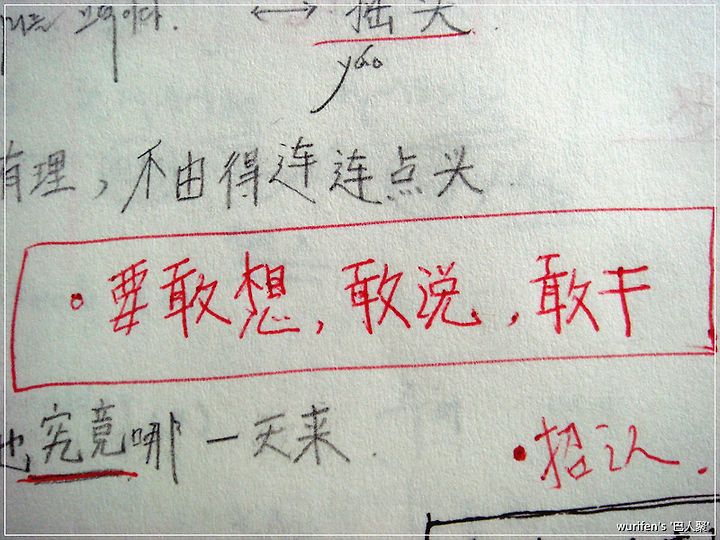 ↔ 摇头.
yáo
有理，不由得连连点头
•要敢想，敢说，敢干
他究竟哪一天来.
•招认.
wurifen's '巴人聚'